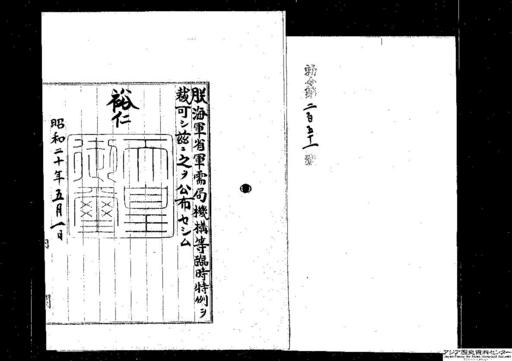 勅令第二百五十一号
朕海軍省軍需局機構等臨時特例ヲ
裁可シ玆ニ之ヲ公布セシム
裕仁
天皇
御璽
昭和二十年五月一日
アジア歴史資料センター